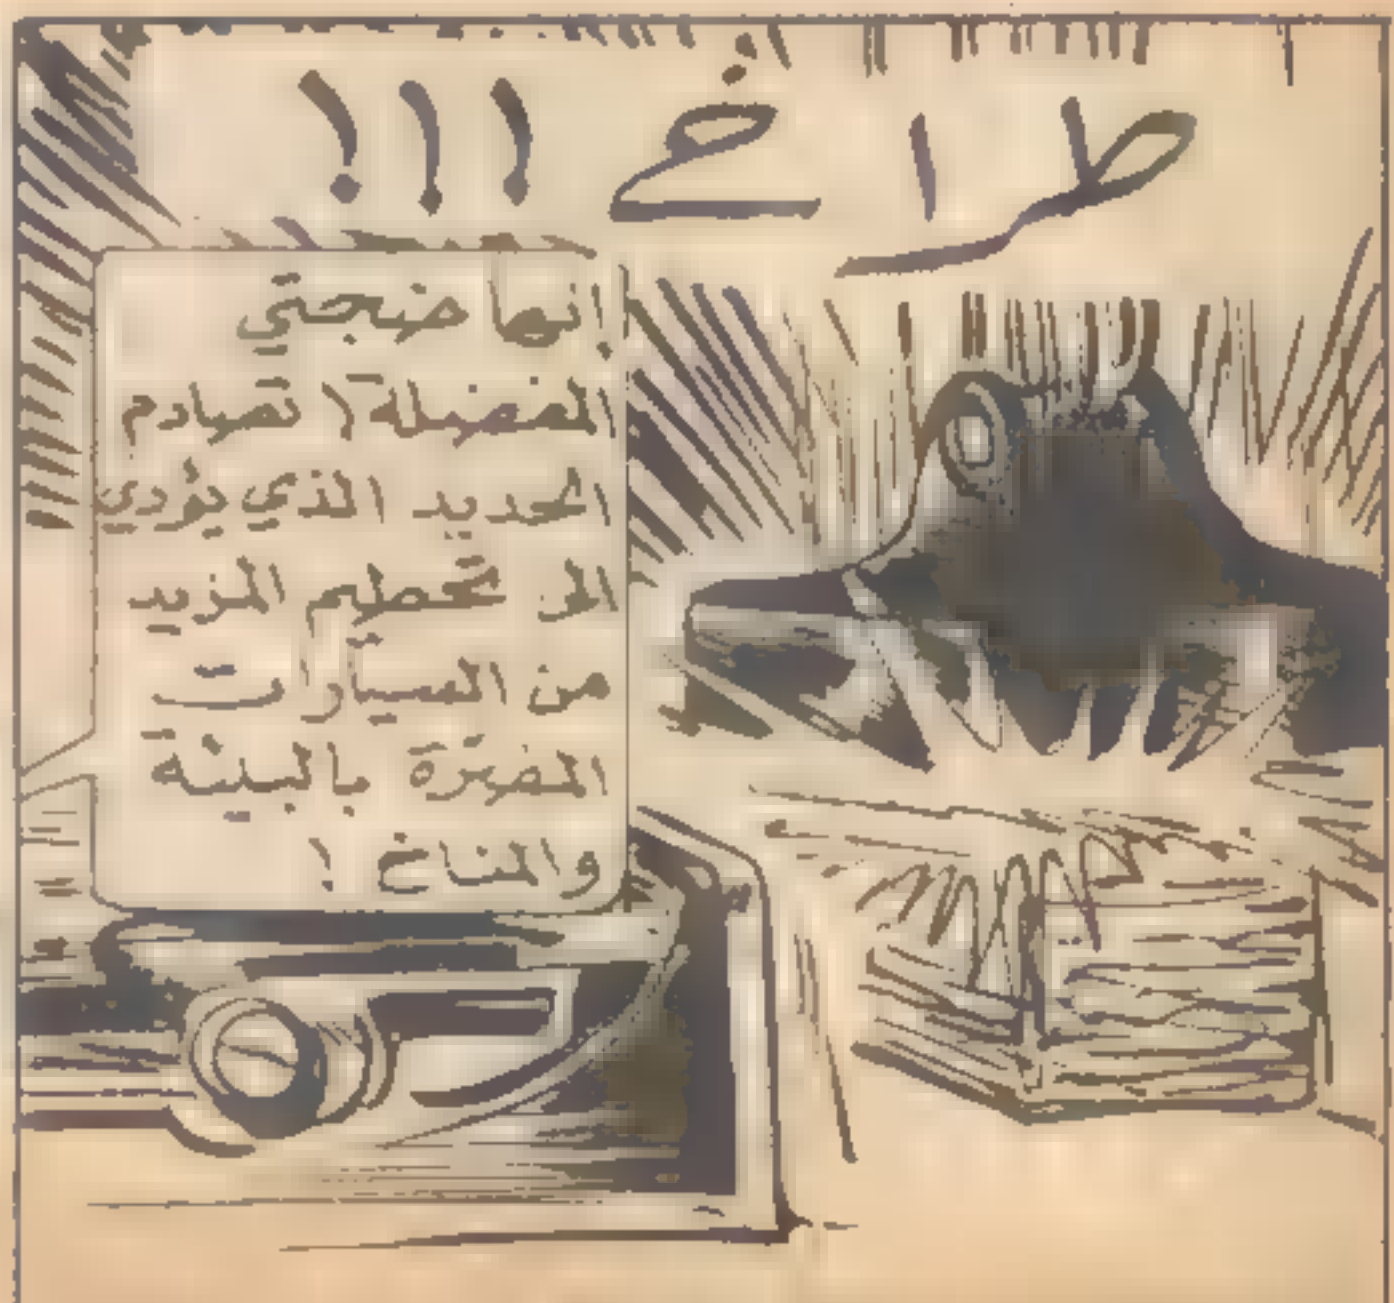 طاخ !!!
إنها ضجتي
المفضلة! تصادم
الحديد الذي يؤدي
الى تحطيم المزيد
من السيارات
المضرة بالبيئة
والمناخ !